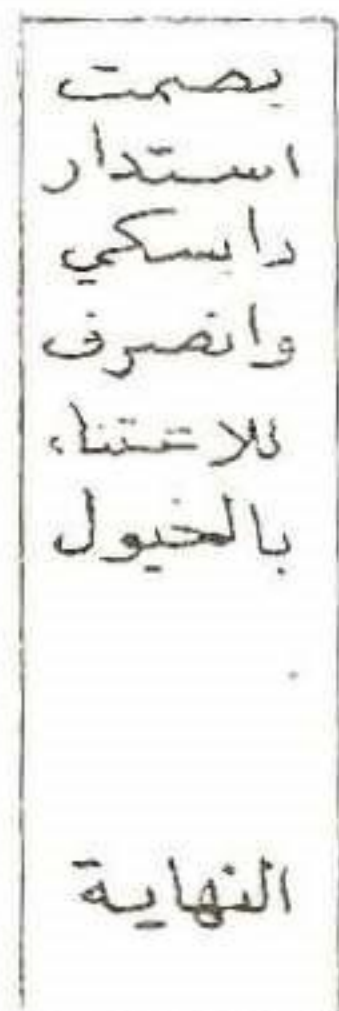 بصمت
استدار
دايسكي
وانصرف
للاعتناء
بالخيول
النهاية